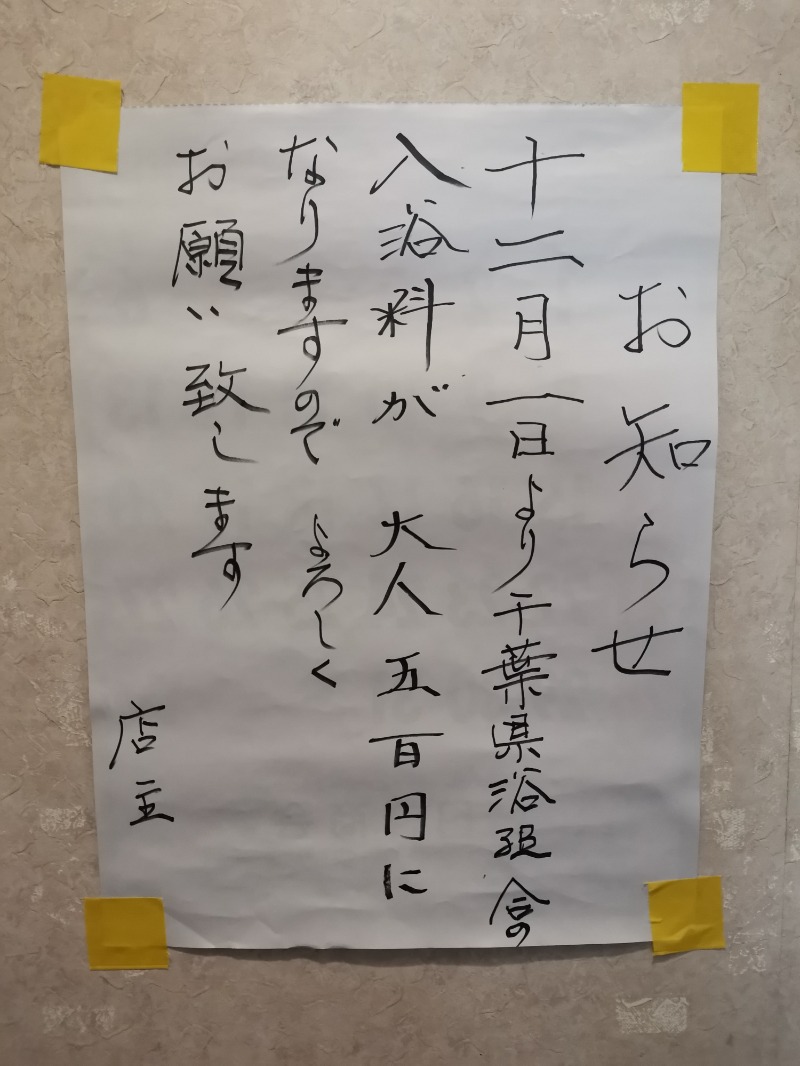 お知らせ
十二月一日より千葉県浴組合の
入浴料が 大人 五百円に
なりますので よろしく
お願い致します
店主